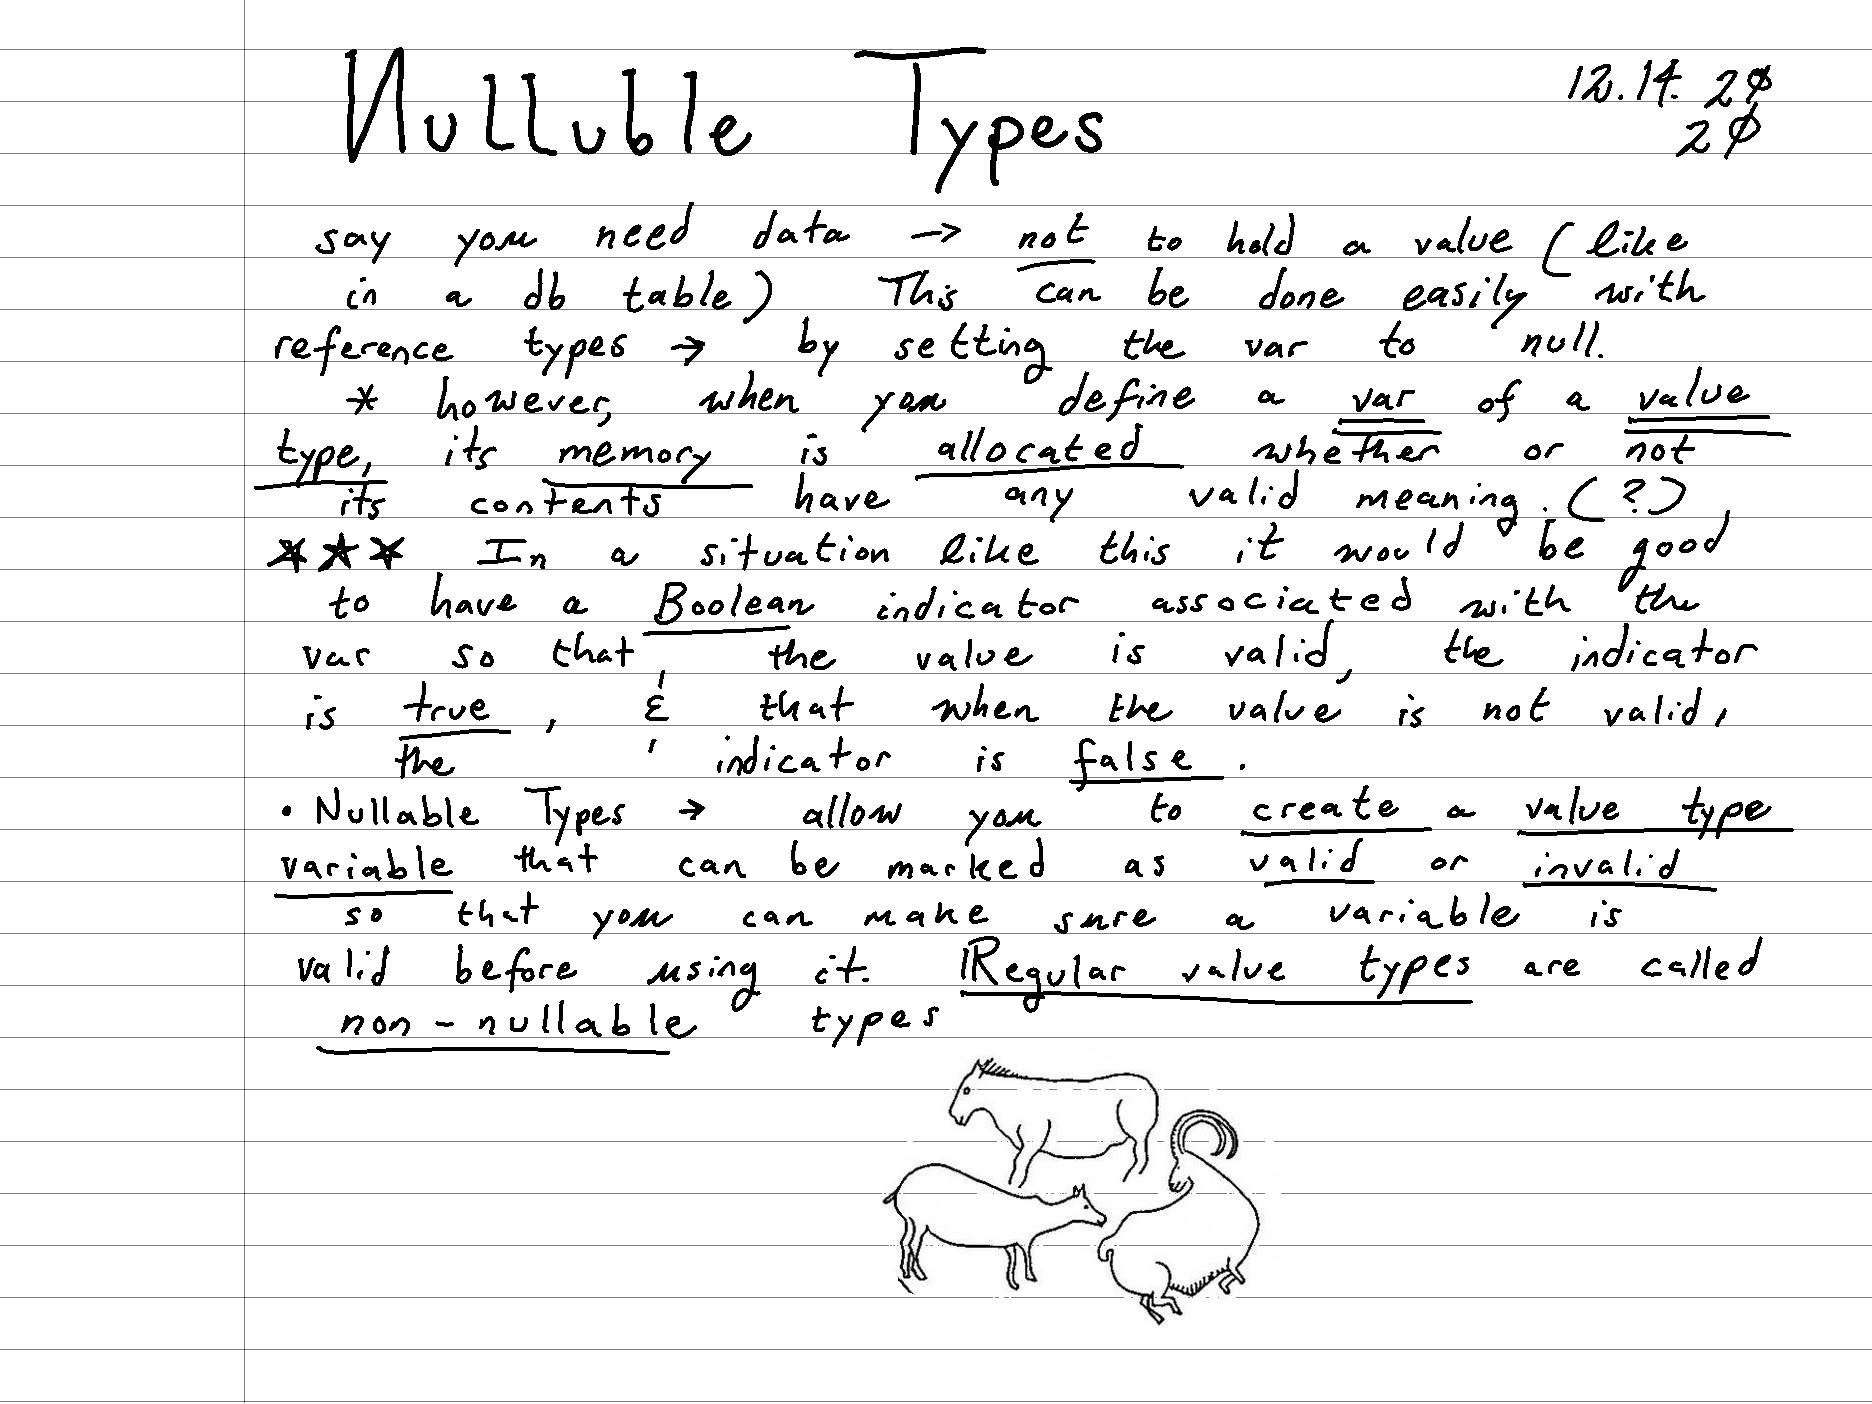 Nulluble Types
12.14.20
20
say you need data → not to hold a value (like
in a db table) This can be done easily with
reference types → by setting the var to null.
* however, when you define a var of a value
type, its memory is allocated whether or not
its contents have any valid meaning. (?)
★★★ In a situation like this it would be good
to have a Boolean indicator associated with the
var so that, the value is valid, the indicator
is true, & that when the value is not valid,
the indicator is false.
• Nullable Types → allow you to create a value type
variable that can be marked as valid or invalid
so that you can make sure a variable is
valid before using it. Regular value types are called
non-nullable types